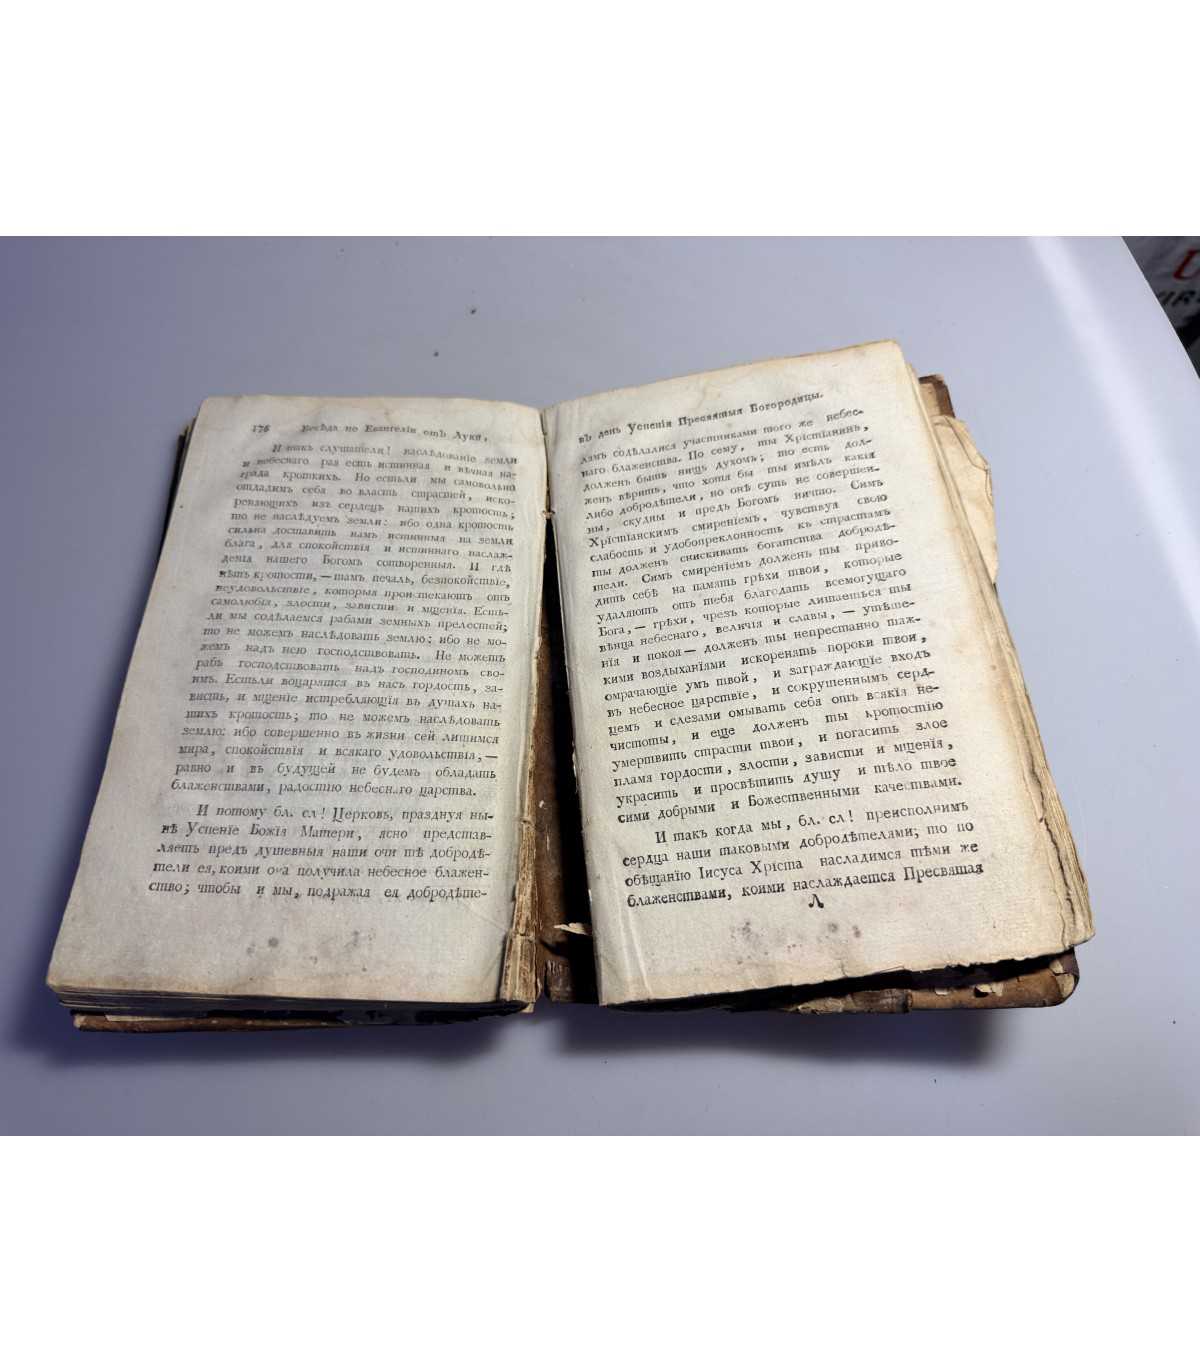 176 Бесѣда по Евангелїи отъ Луки,
И такъ слушатели! наслѣдованїе земли
и небеснаго рая есть истинная и вѣчная на-
града кроткихъ. Но естьли мы самовольно
отдадимъ себя во власть страстей, иско-
реняющихъ изъ сердецъ нашихъ кротость;
то не наслѣдуемъ земли: ибо одна кротость
сильна доставить намъ истинныя на земли
блага, для спокойствїя и истиннаго наслаж-
денїя нашего Богомъ сотворенныя. И гдѣ
нѣтъ кротости, — тамъ печаль, безпокойствїе,
неудовольствїе, которыя проистекаютъ отъ
самолюбїя, злости, зависти и мщенїя. Есть-
ли мы содѣлаемся рабами земныхъ прелестей;
то не можемъ наслѣдовать землю; ибо не мо-
жемъ надъ нею господствовать. Не можетъ
рабъ господствовать надъ господиномъ сво-
имъ. Естьли воцарятся въ насъ гордость, за-
висть, и мщенїе истребляющїя въ душахъ на-
шихъ кротость; то не можемъ наслѣдовать
землю: ибо совершенно въ жизни сей лишимся
мира, спокойствїя и всякаго удовольствїя, —
равно и въ будущей не будемъ обладать
блаженствами, радостїю небеснаго царства.
И потому бл. сл! Церковь, празднуя ны-
нѣ Успенїе Божїя Матери, ясно представ-
ляетъ предъ душевныя наши очи тѣ добродѣ-
тели ея, коими она получила небесное блажен-
ство; чтобы и мы, подражая ея добродѣте-
въ день Успенїя Пресвятыя Богородицы.
лямъ содѣлалися участниками того же небес-
наго блаженства. По сему, ты Хрїстїанинъ,
долженъ быть нищъ духомъ; то есть дол-
женъ вѣрить, что хотя бы ты имѣлъ какїя
либо добродѣтели, но онѣ суть не совершен-
ны, скудны и предъ Богомъ ничто. Симъ
Хрїстїанскимъ смиренїемъ, чувствуя свою
слабость и удобопреклонность къ страстямъ
ты долженъ снискивать богатства добродѣ-
тели. Симъ смиренїемъ долженъ ты приво-
дить себѣ на память грѣхи твои, которые
удаляютъ отъ тебя благодать всемогущаго
Бога, — грѣхи, чрезъ которые лишаешься ты
вѣнца небеснаго, величїя и славы, — утѣше-
нїя и покоя — долженъ ты непрестанно тяж-
кими воздыханїями искоренять пороки твои,
омрачающїе умъ твой, и заграждающїе входъ
въ небесное царствїе, и сокрушеннымъ серд-
цемъ и слезами омывать себя отъ всякїя не-
чистоты, и еще долженъ ты кротостїю
умертвить страсти твои, и погасить злое
пламя гордости, злости, зависти и мщенїя,
украсить и просвѣтить душу и тѣло твое
сими добрыми и Божественными качествами.
И такъ когда мы, бл. сл! преисполнимъ
сердца наши таковыми добродѣтелями; то по
обѣщанїю Іисуса Хрїста насладимся тѣми же
блаженствами, коими наслаждается Пресвятая
Л